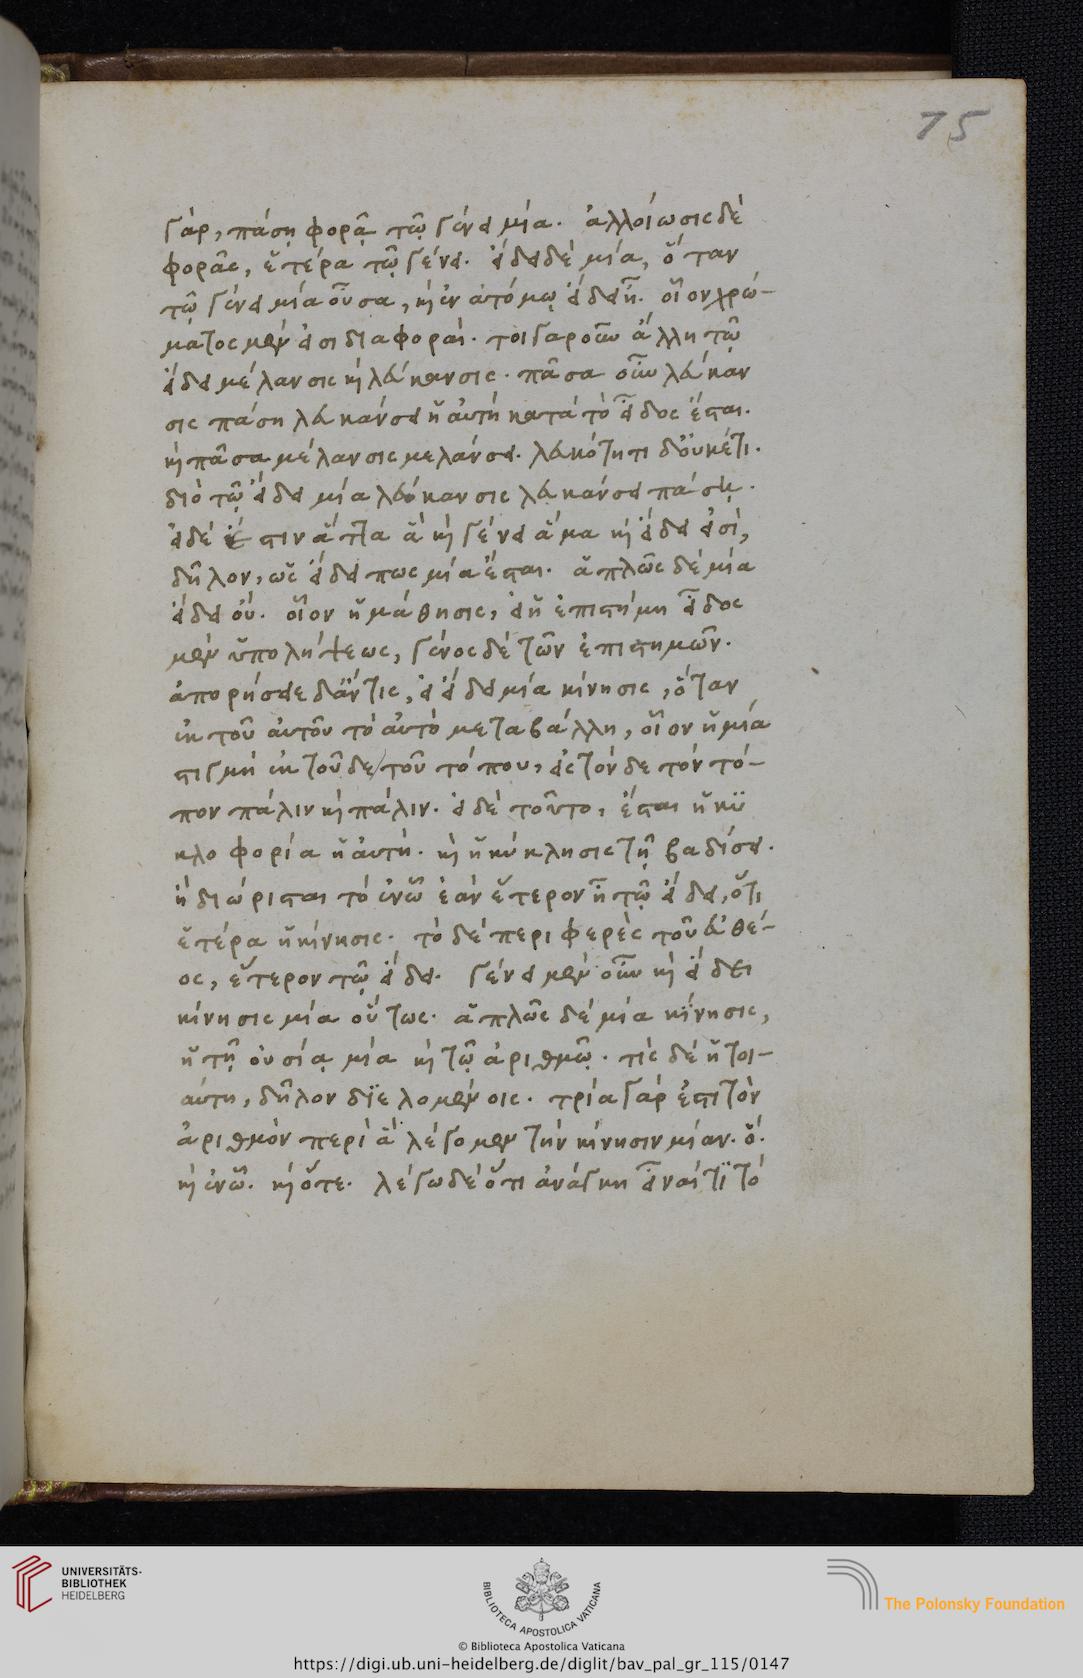 75
γὰρ, πάσῃ φορᾷ τῷ γένει μία. ἀλλοίωσις δὲ
φορᾶς, ἑτέρα τῷ γένει. εἴδει δὲ μία, ὅταν
τῷ γένει μία οὖσα, καὶ ἐν ἀτόμῳ εἴδει ᾖ. οἷον χρώ-
ματος μέν εἰσι διαφοραί. τοιγαροῦν ἄλλη τῷ
εἴδει μέλανσις καὶ λεύκανσις. πᾶσα οὖν λεύκαν
σις πάσῃ λευκάνσει ἡ αὐτὴ κατὰ τὸ εἶδος ἔσται.
καὶ πᾶσα μέλανσις μελάνσει. λευκότητι δ' οὐκέτι.
διὸ τῷ εἴδει μία λεύκανσις λευκάνσει πάσῃ.
εἰ δέ ἐστιν ἄττα ἃ καὶ γένει ἅμα καὶ εἴδει εἰσὶ,
δῆλον, ὡς εἴδει πως μία ἔσται. ἁπλῶς δὲ μία
εἴδει οὔ. οἷον ἡ μάθησις, εἰ ἡ ἐπιστήμη εἶδος
μὲν ὑπολήψεως, γένος δὲ τῶν ἐπιστημῶν.
ἀπορήσειε δ' ἄν τις, εἰ εἴδει μία κίνησις, ὅταν
ἐκ τοῦ αὐτοῦ τὸ αὐτὸ μεταβάλλη, οἷον ἡ μία
στιγμὴ ἐκ τοῦδε τοῦ τόπου, εἰς τόνδε τὸν τό-
πον πάλιν καὶ πάλιν. εἰ δὲ τοῦτο, ἔσται ἡ κυ
κλοφορία ἡ αὐτὴ. καὶ ἡ κύκλησις τῇ βαδίσει.
ἢ διώρισται τὸ ἐν ᾧ ἐὰν ἕτερον ᾖ τῷ εἴδει, ὅτι
ἑτέρα ἡ κίνησις. τὸ δὲ περιφερὲς τοῦ εὐθέ-
ος, ἕτερον τῷ εἴδει. γένει μὲν οὖν καὶ εἴδει
κίνησις μία οὕτως. ἁπλῶς δὲ μία κίνησις,
ἡ τῇ οὐσίᾳ μία καὶ τῷ ἀριθμῷ. τίς δὲ ἡ τοι-
αύτη, δῆλον διελομένοις. τρία γάρ ἐστι τὸν
ἀριθμὸν περὶ ἃ λέγομεν τὴν κίνησιν μίαν. ὅ.
καὶ ἐν ᾧ. καὶ ὅτε. λέγω δὲ ὅτι ἀνάγκη εἶναί τι τὸ
UNIVERSITÄTS-
BIBLIOTHEK
HEIDELBERG
BIBLIOTECA APOSTOLICA VATICANA
The Polonsky Foundation
© Biblioteca Apostolica Vaticana
https://digi.ub.uni-heidelberg.de/diglit/bav_pal_gr_115/0147